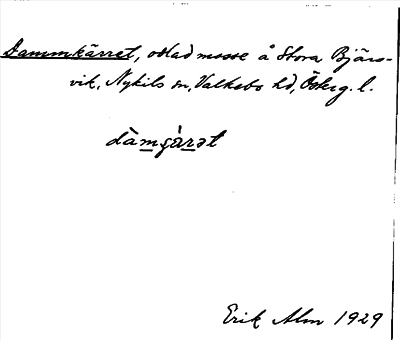 Dammkärret, odlad mosse å Stora Bjärs-
vik, Nykils sn, Valkebo hd, Österg. l.
dàmɡàrət
Erik Alm 1929